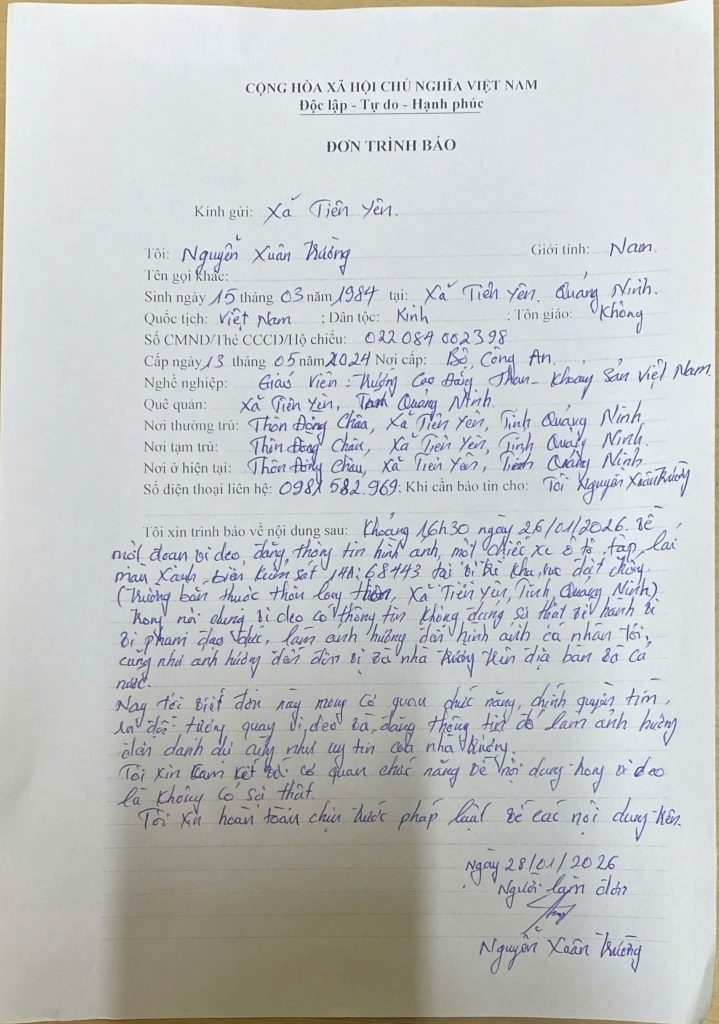 CỘNG HÒA XÃ HỘI CHỦ NGHĨA VIỆT NAM
Độc lập - Tự do - Hạnh phúc
ĐƠN TRÌNH BÁO
Kính gửi: Xã Tiên Yên.
Tôi: Nguyễn Xuân Trường Giới tính: Nam
Tên gọi khác:
Sinh ngày 15 tháng 03 năm 1984 tại: Xã Tiên Yên. Quảng Ninh.
Quốc tịch: Việt Nam ; Dân tộc: Kinh ; Tôn giáo: Không
Số CMND/Thẻ CCCD/Hộ chiếu: 022084002398
Cấp ngày 13 tháng 05 năm 2024 Nơi cấp: Bộ Công An.
Nghề nghiệp: Giáo Viên: Trường Cao Đẳng Than - Khoáng Sản Việt Nam.
Quê quán: Xã Tiên Yên, Tỉnh Quảng Ninh.
Nơi thường trú: Thôn Đông Châu, Xã Tiên Yên, Tỉnh Quảng Ninh
Nơi tạm trú: Thôn Đông Châu, Xã Tiên Yên, Tỉnh Quảng Ninh.
Nơi ở hiện tại: Thôn Đông Châu, Xã Tiên Yên, Tỉnh Quảng Ninh
Số điện thoại liên hệ: 0981 582.969; Khi cần báo tin cho: Tôi Nguyễn Xuân Trường
Tôi xin trình báo về nội dung sau: Khoảng 16h30 ngày 26/01/2026. Về
một đoạn vi deo, đăng thông tin hình ảnh, một chiếc xe ô tô tập lái
màu xanh, biển kiểm sát 14A: 68443 tại vị trí khu vực đất trống.
(Trường bắn thuộc thôn long, Xã Tiên Yên, Tỉnh Quảng Ninh)
Trong nội dung vi deo có thông tin không đúng sự thật về hành vi
vi phạm đạo đức, làm ảnh hưởng đến hình ảnh cá nhân tôi,
cũng như ảnh hưởng đến đơn vị và nhà trường trên địa bàn và cả
nước.
Nay tôi viết đơn này mong cơ quan chức năng, chính quyền tìm,
ra đối tượng quay vi deo và đăng thông tin đó làm ảnh hưởng
đến danh dự cũng như uy tín của nhà trường.
Tôi xin cam kết với cơ quan chức năng về nội dung trong vi deo
là không có sự thật.
Tôi xin hoàn toàn chịu trước pháp luật về các nội dung trên.
Ngày 28/01/2026
Người làm đơn
Nguyễn Xuân Trường